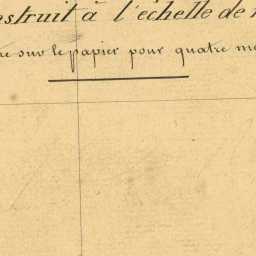 nstruit à l'échelle de
sur le papier pour quatre